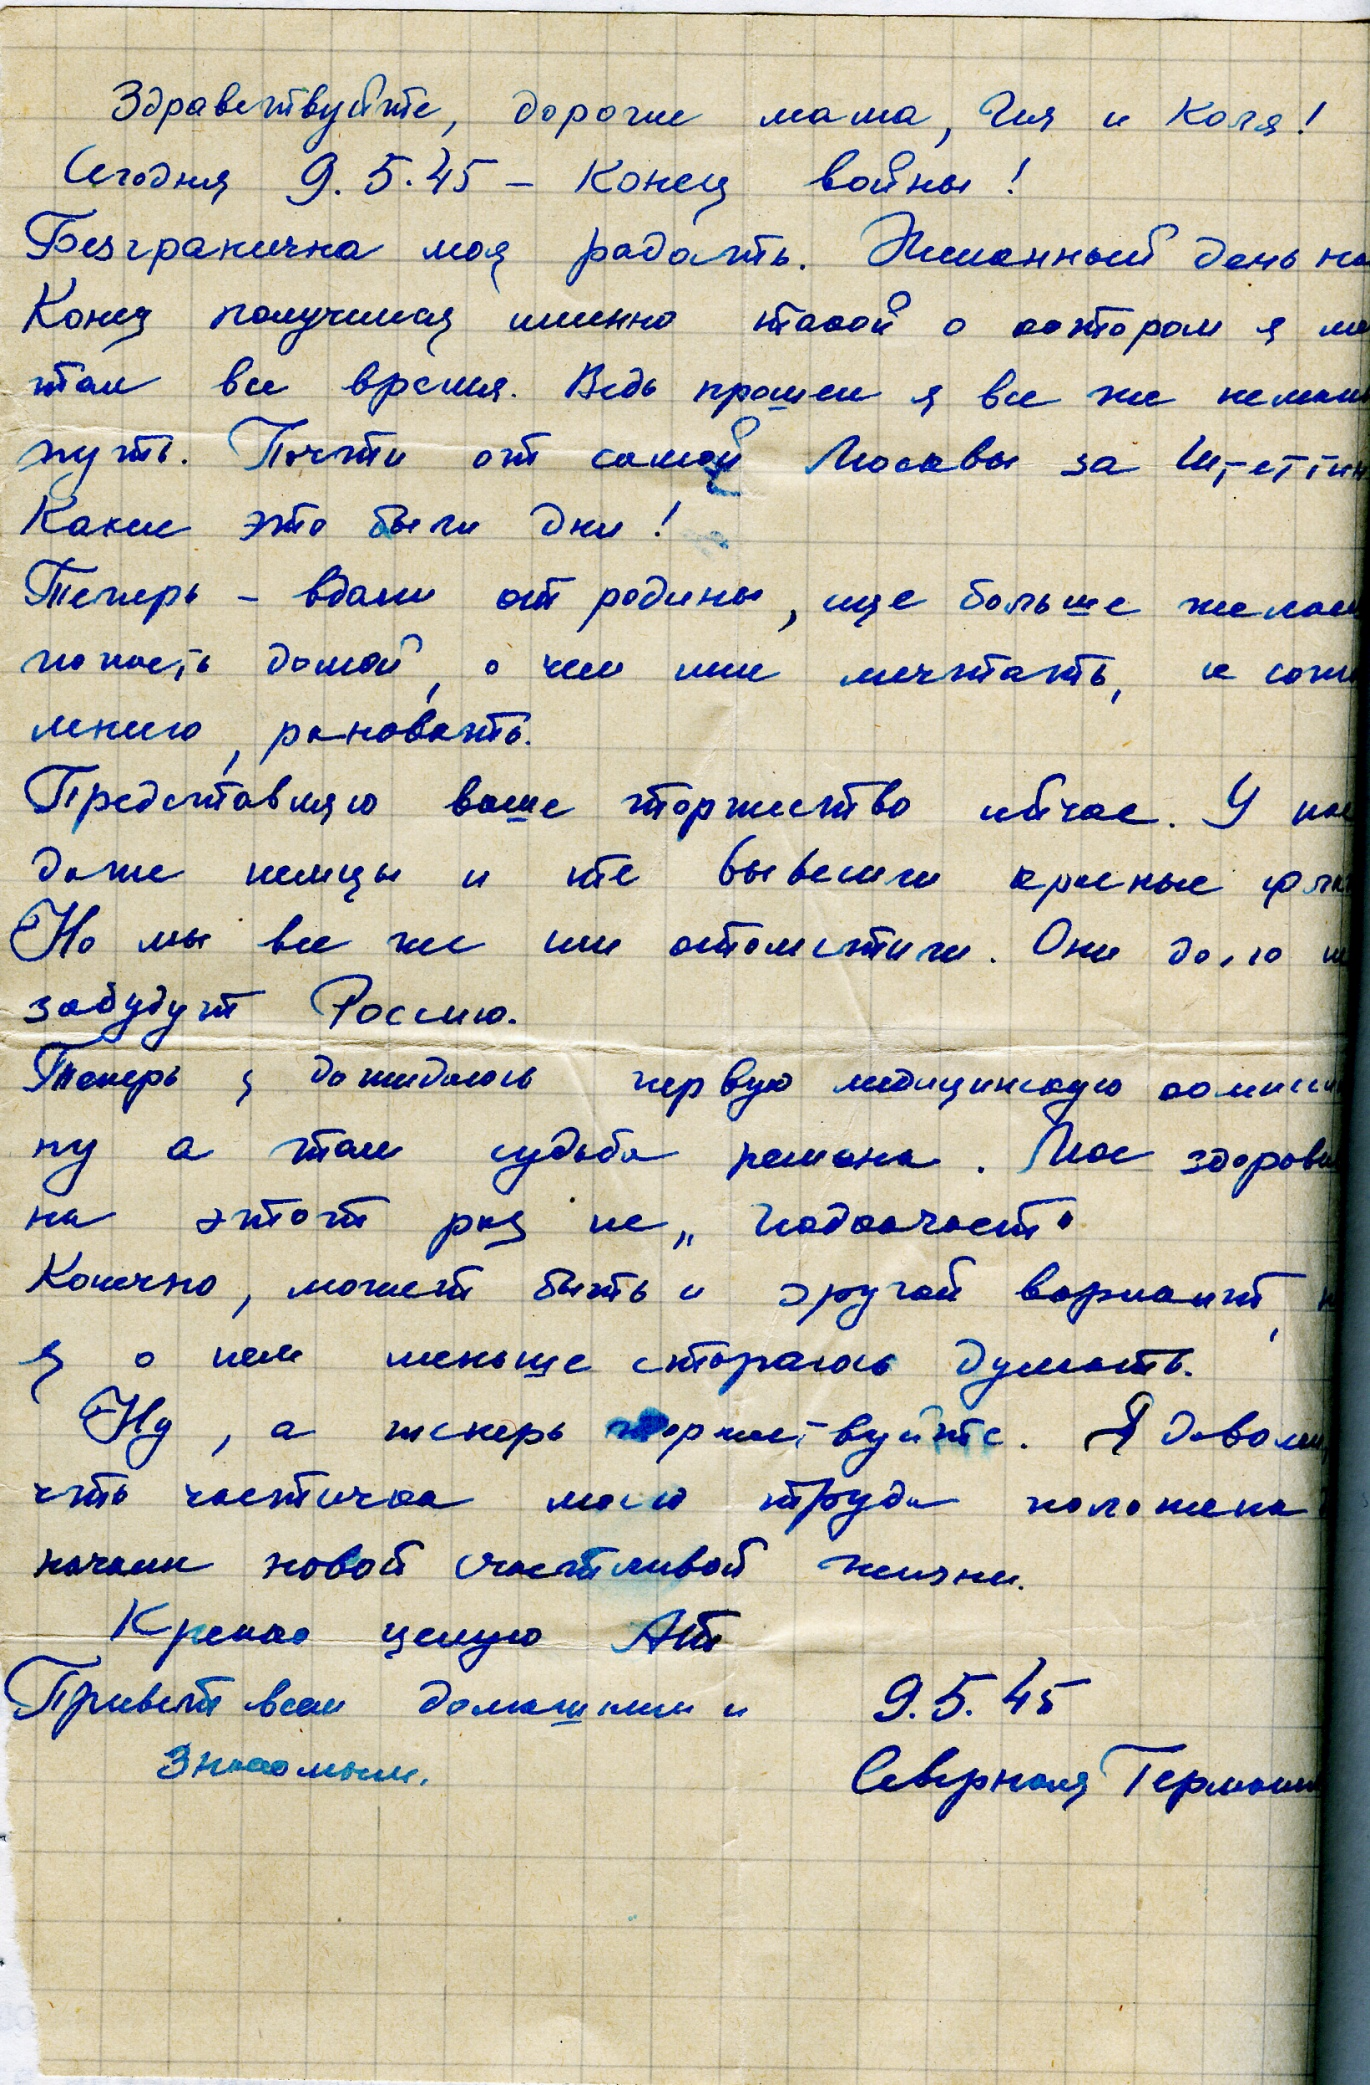 Здравствуйте, дорогие мама, Ия и Коля!
Сегодня 9.5.45 – Конец войны!
Безгранична моя радость. Желанный день на
Конец получился именно такой о котором я ме
тал все время. Ведь прошел я все же немалы
путь. Почти от самой Москвы за Штеттин
Какие это были дни!
Теперь – вдали от родины, еще больше желаю
попасть домой, о чем мне мечтать, к сожа
лению, рановато.
Представляю ваше торжество сейчас. У нас
даже немцы и те вывесили красные флаг
Но мы все же им отомстили. Они долго не
забудут Россию.
Теперь я дожидаюсь первую медицинскую комисси
ну а там судьба решена. Мое здоровь
на этот раз не „подкачает"
Конечно, может быть и другой вариант, н
я о нем меньше стараюсь думать.
Ну, а теперь торжествуйте. Я доволен,
что частичка моего труда положена в
начали новой счастливой жизни.
Крепко целую АТ
Привет всем домашним и 9.5.45
знакомым. Северная Германи